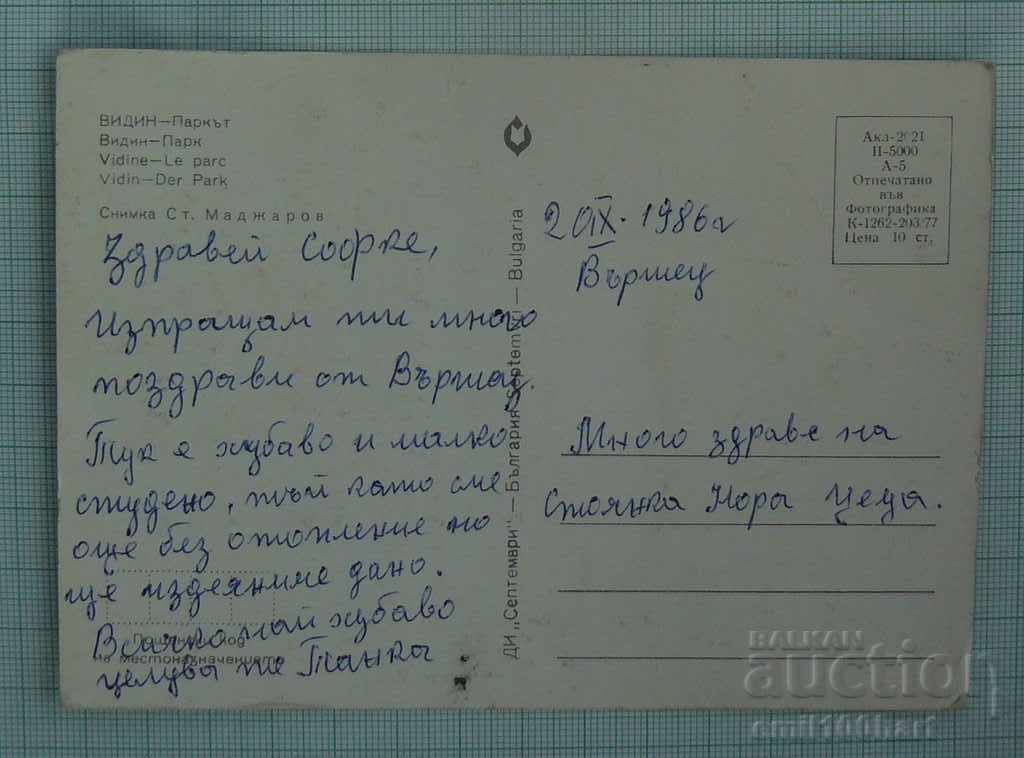 ВИДИН—Паркът
Видин—Парк
Vidine—Le parc
Vidin—Der Park
Снимка Ст. Маджаров
Здравей Софке,
Изпращам ти много
поздрави от Вършец.
Тук е хубаво и малко
студено, тъй като сме
още без отопление но
ще издеяниме дано.
Всичко най хубаво
целува те Танка
Пощенски код
на местоназначението
ДИ „Септември" — България Septemvri — Bulgaria
20 IX. 1986 г
Вършец
Акл-2021
П-5000
А-5
Отпечатано
във
Фотографика
К-1262-203/77
Цена 10 ст.
Много здраве на
Стоянка Нора Цеца.
BALKAN
auction
emil100hart